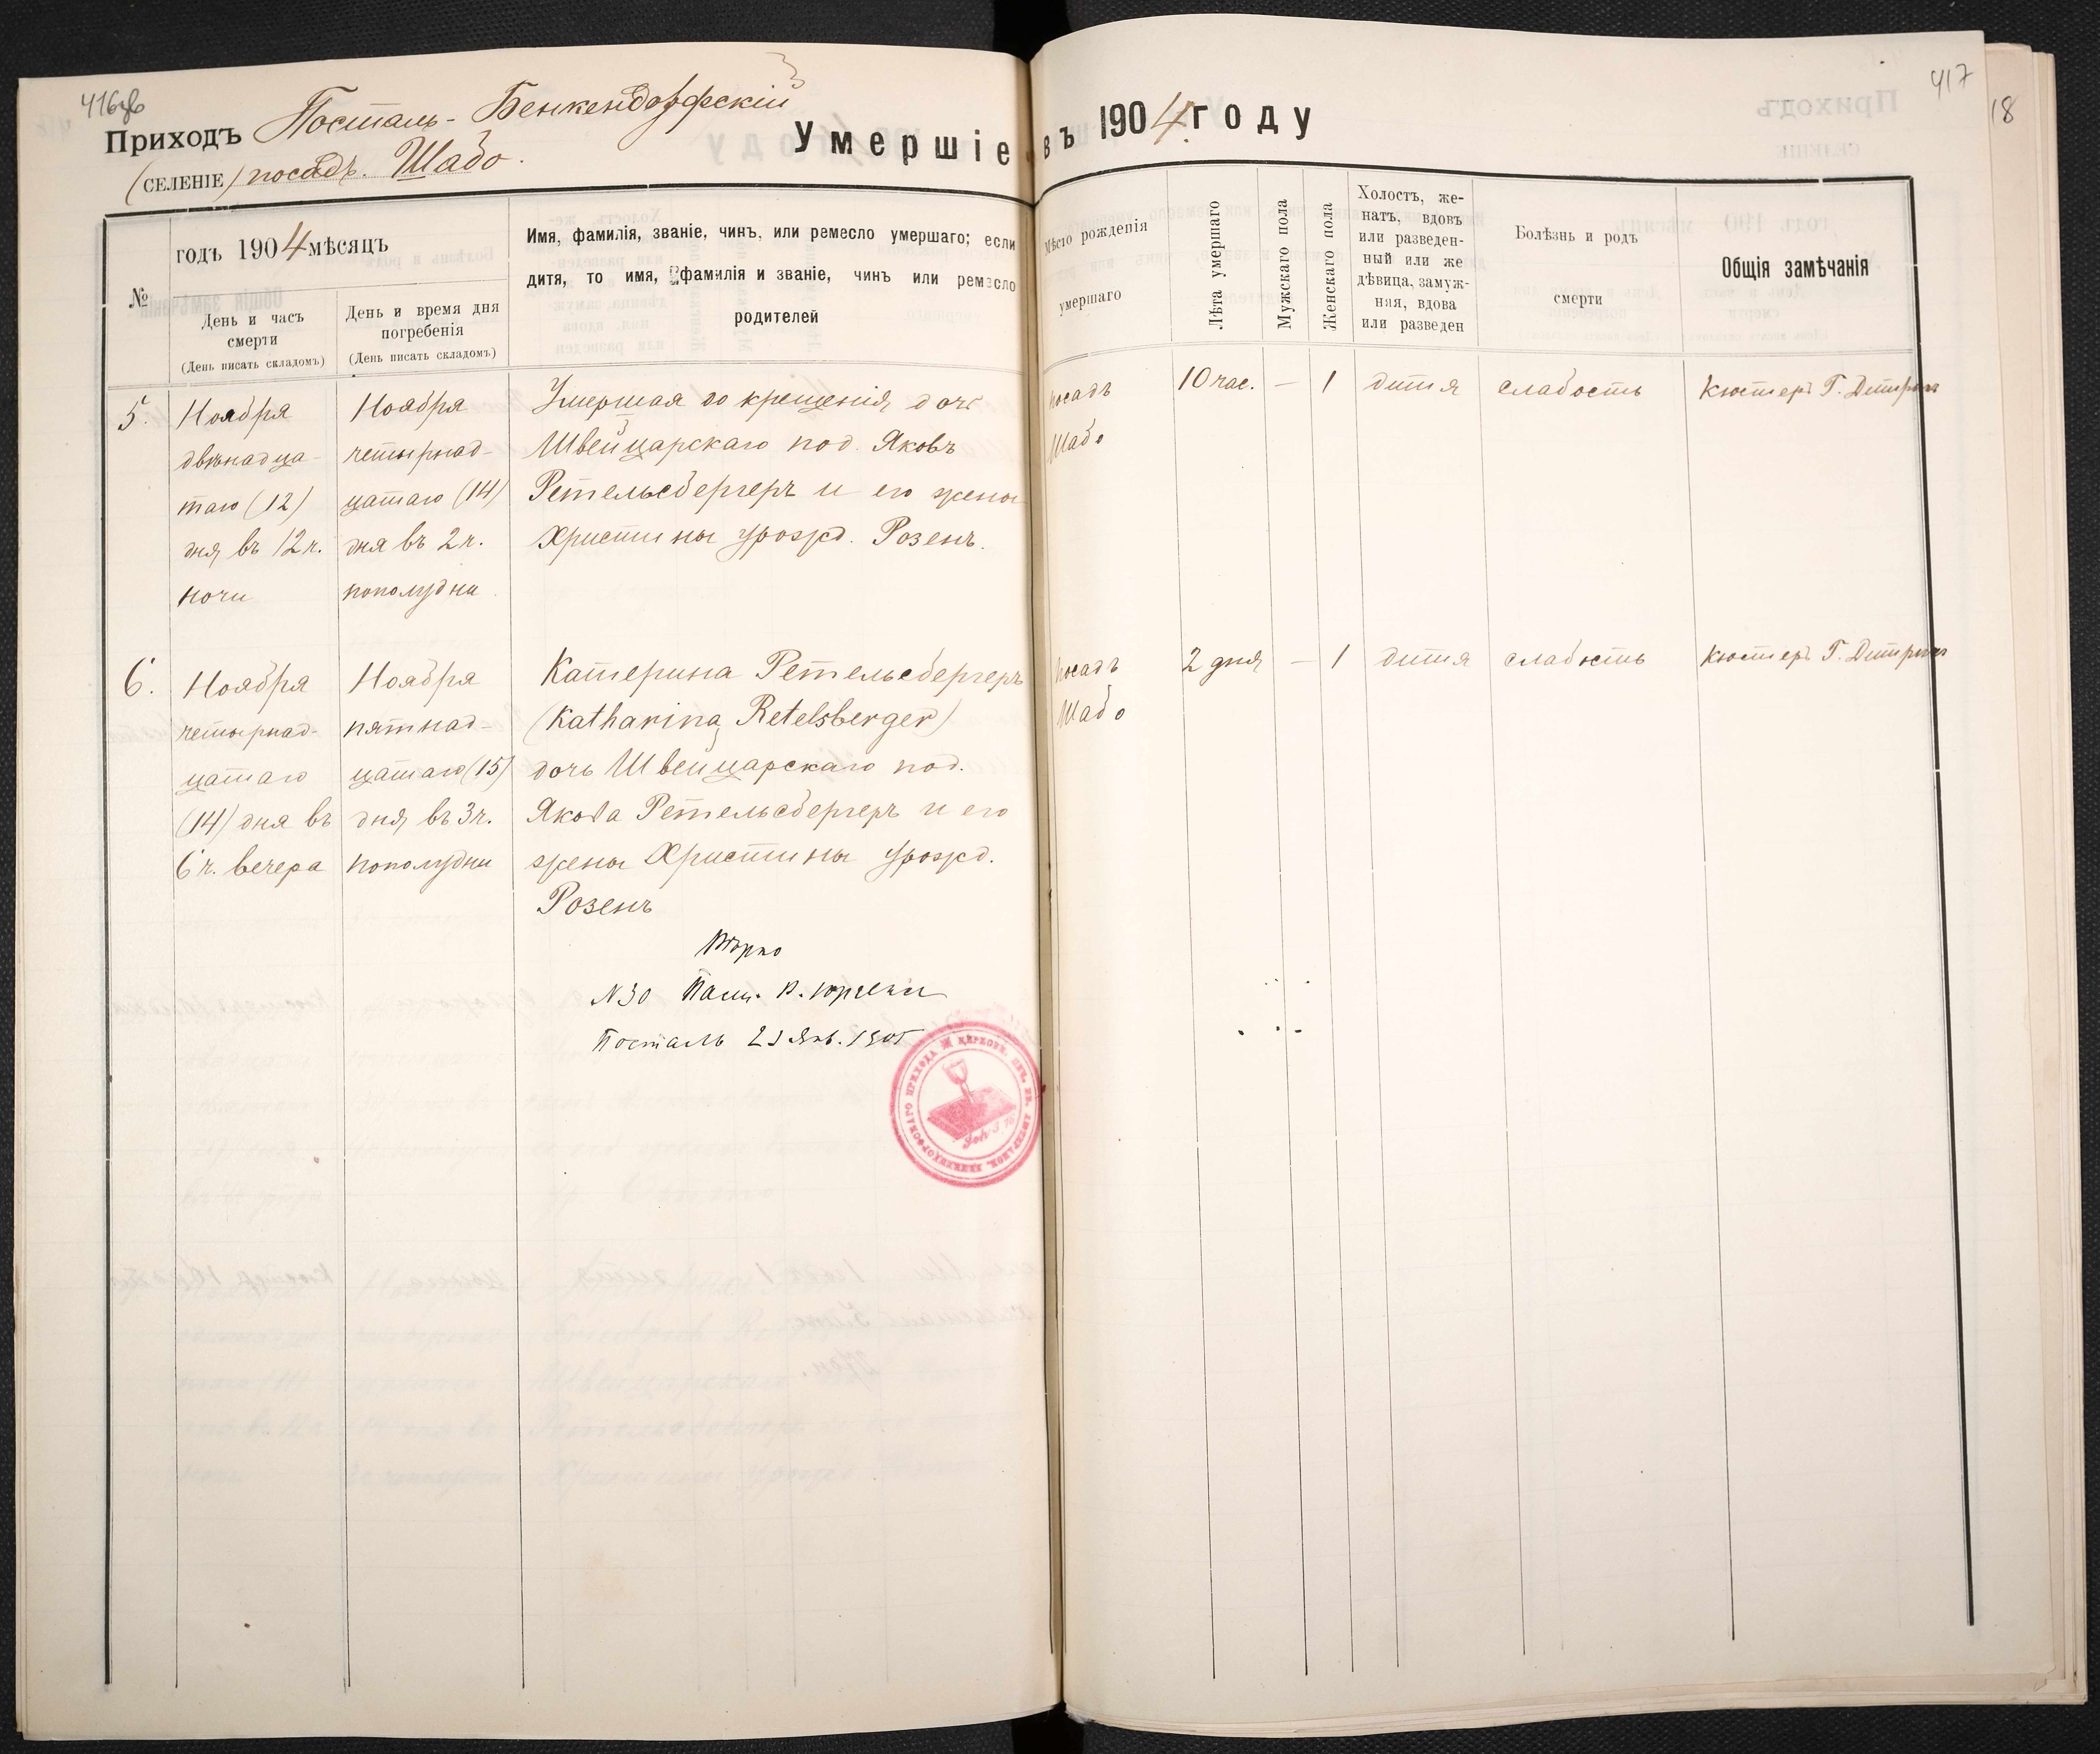 416об
Приходъ Посталь-Бенкендорфскій
(СЕЛЕНІЕ) посадъ. Шабо.
Умершіе
№
годъ 1904 мѣсяцъ
День и часъ
смерти
(День писать складомъ)
День и время дня
погребенія
(День писать складомъ)
Имя, фамилія, званіе, чинъ, или ремесло умершаго; если
дитя, то имя, фамилія и званіе, чинъ или ремесло
родителей
5.
Ноября
двѣнадца-
таго (12)
дня въ 12 ч.
ночи
Ноября
четырнад-
цатаго (14)
дня въ 2 ч.
пополудни
Умершая до крещенія дочь
Швейцарскаго под. Яковъ
Ретельсбергеръ и его жены
Христины урожд. Розенъ.
6.
Ноября
четырнад-
цатаго
(14) дня въ
6 ч. вечера
Ноября
пятнад-
цатаго (15)
дня въ 3 ч.
пополудни
Катерина Ретельсбергеръ
(Katharina Retelsberger)
дочь Швейцарскаго под.
Якова Ретельсбергеръ и его
жены Христины урожд.
Розенъ
Вѣрно
N 30 Паст.
Посталь Янв. 1905
417
18
въ 1904 году
Мѣсто рожденія
умершаго
Лѣта умершаго
Мужскаго пола
Женскаго пола
Холостъ, же-
натъ, вдовъ
или разведен-
ный или же
дѣвица, замуж-
няя, вдова
или разведен
Болѣзнь и родъ
смерти
Общія замѣчанія
посадъ
Шабо
10 час.
—
1
дитя
слабость
Кюстеръ Г. Дитрихъ
посадъ
Шабо
2 дня
—
1
дитя
слабость
Кюстеръ Г. Дитрихъ